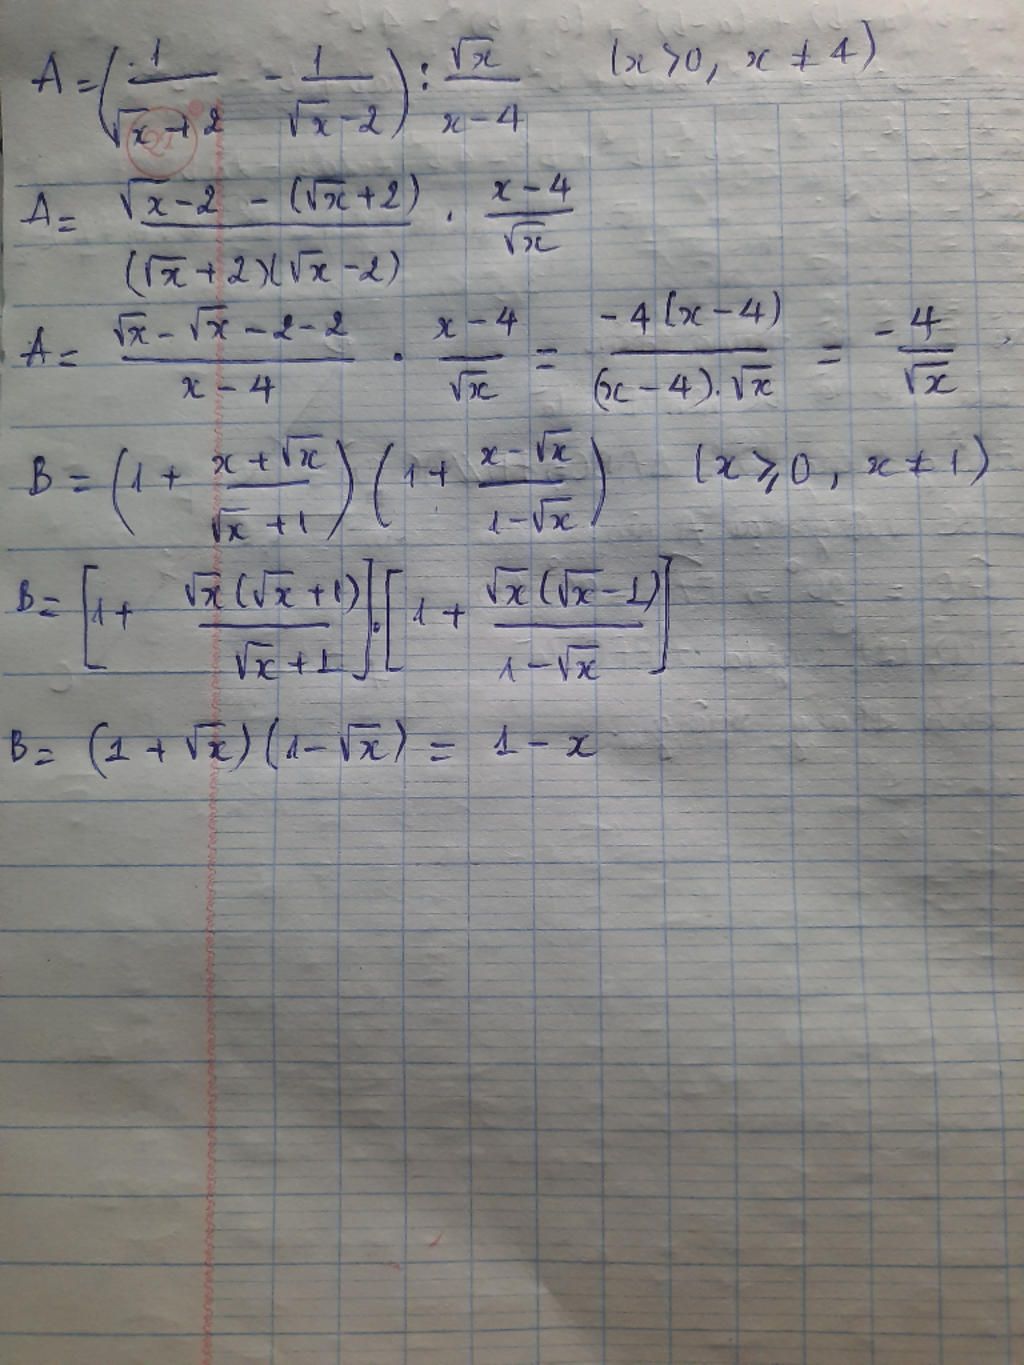 A = (1/(√x + 2) - 1/(√x - 2)) : √x/(x - 4) (x > 0, x ≠ 4)
A = (√x - 2 - (√x + 2))/((√x + 2)(√x - 2)) . (x - 4)/√x
A = (√x - √x - 2 - 2)/(x - 4) . (x - 4)/√x = -4(x - 4)/((x - 4).√x) = -4/√x
B = (1 + (x + √x)/(√x + 1)) (1 + (x - √x)/(1 - √x)) (x ⩾ 0, x ≠ 1)
B = [1 + √x(√x + 1)/(√x + 1)] . [1 + √x(√x - 1)/(1 - √x)]
B = (1 + √x)(1 - √x) = 1 - x